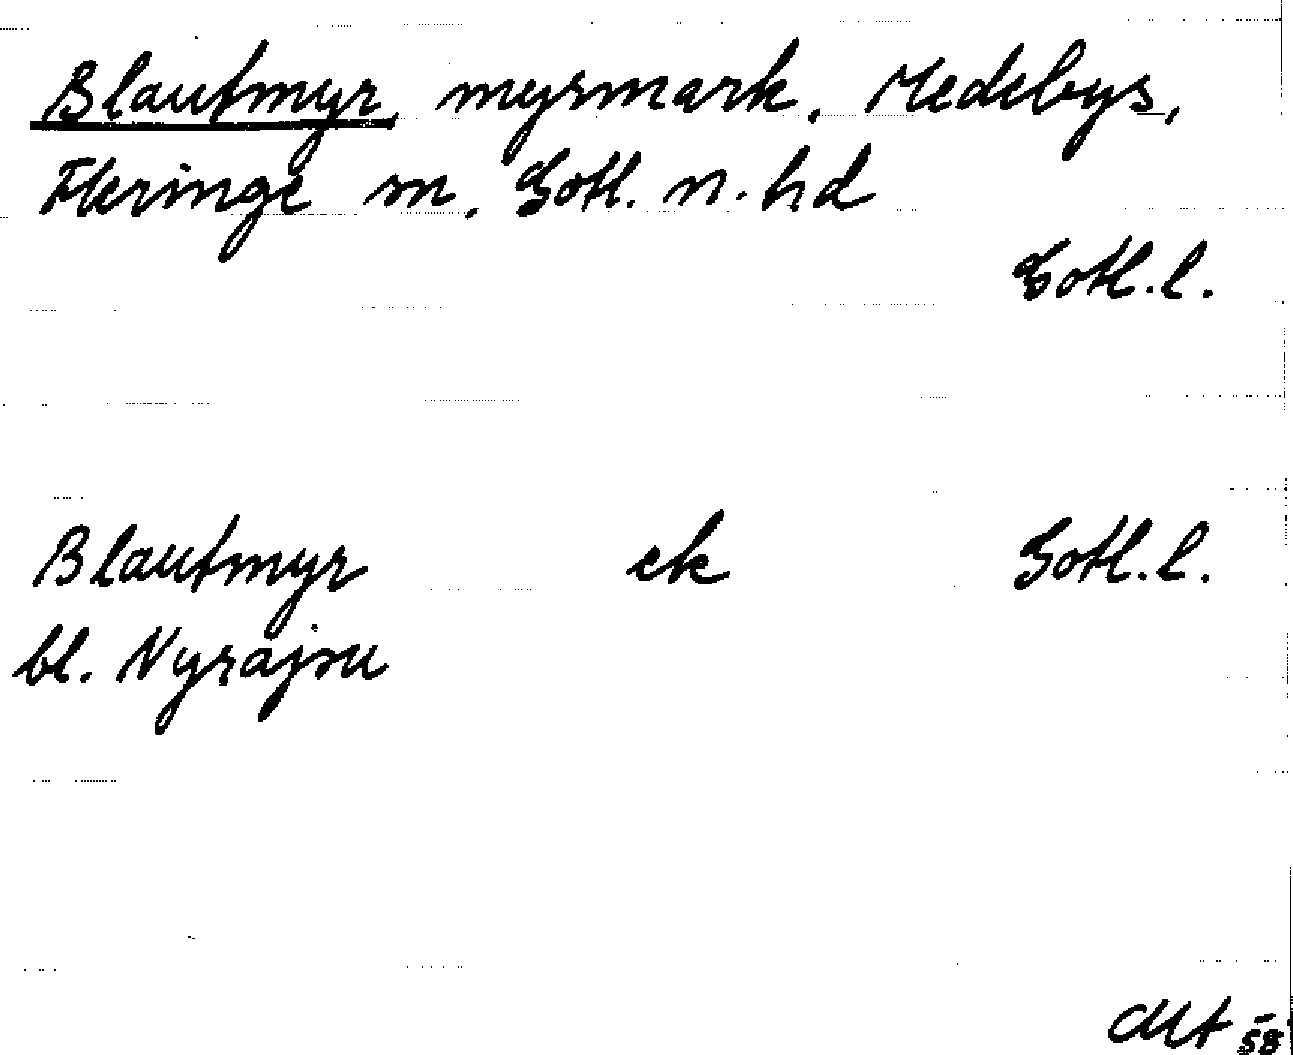 Blautmyr, myrmark, Medebys,
Fleringe sn. Gotl. n. hd
Gotl. l.
Blautmyr ek Gotl. l.
bl. Nyrajsu
58